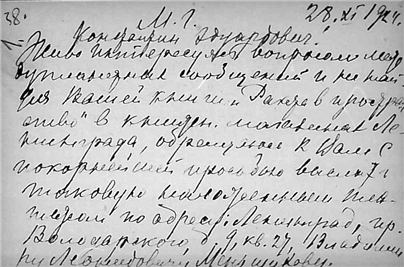 38. М. Г. 28. XI 1924.
1. Константин Эдуардович!
Живо интересуясь вопросом меж-
дупланетных сообщений и не най-
дя Вашей книги „Ракета в простран-
ство" в книжн. магазинах Ле-
нинграда, обращаюсь к Вам с
покорнейшей просьбой выслать
таковую наложенным пла-
тежом по адресу: Ленинград, пр.
Володарского, д. 9, кв. 27, Владими-
ру Леонидовичу Меньшикову.